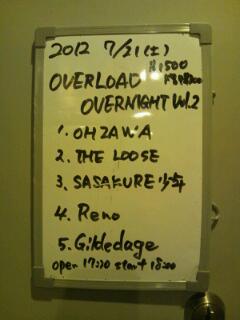 2012 7/21(土)
OVERLOAD ¥1500
OVERNIGHT Vol.2
1. OHZAWA
2. THE LOOSE
3. SASAKURE少年
4. Reno
5. Gildedage
open 17:30 start 18:00